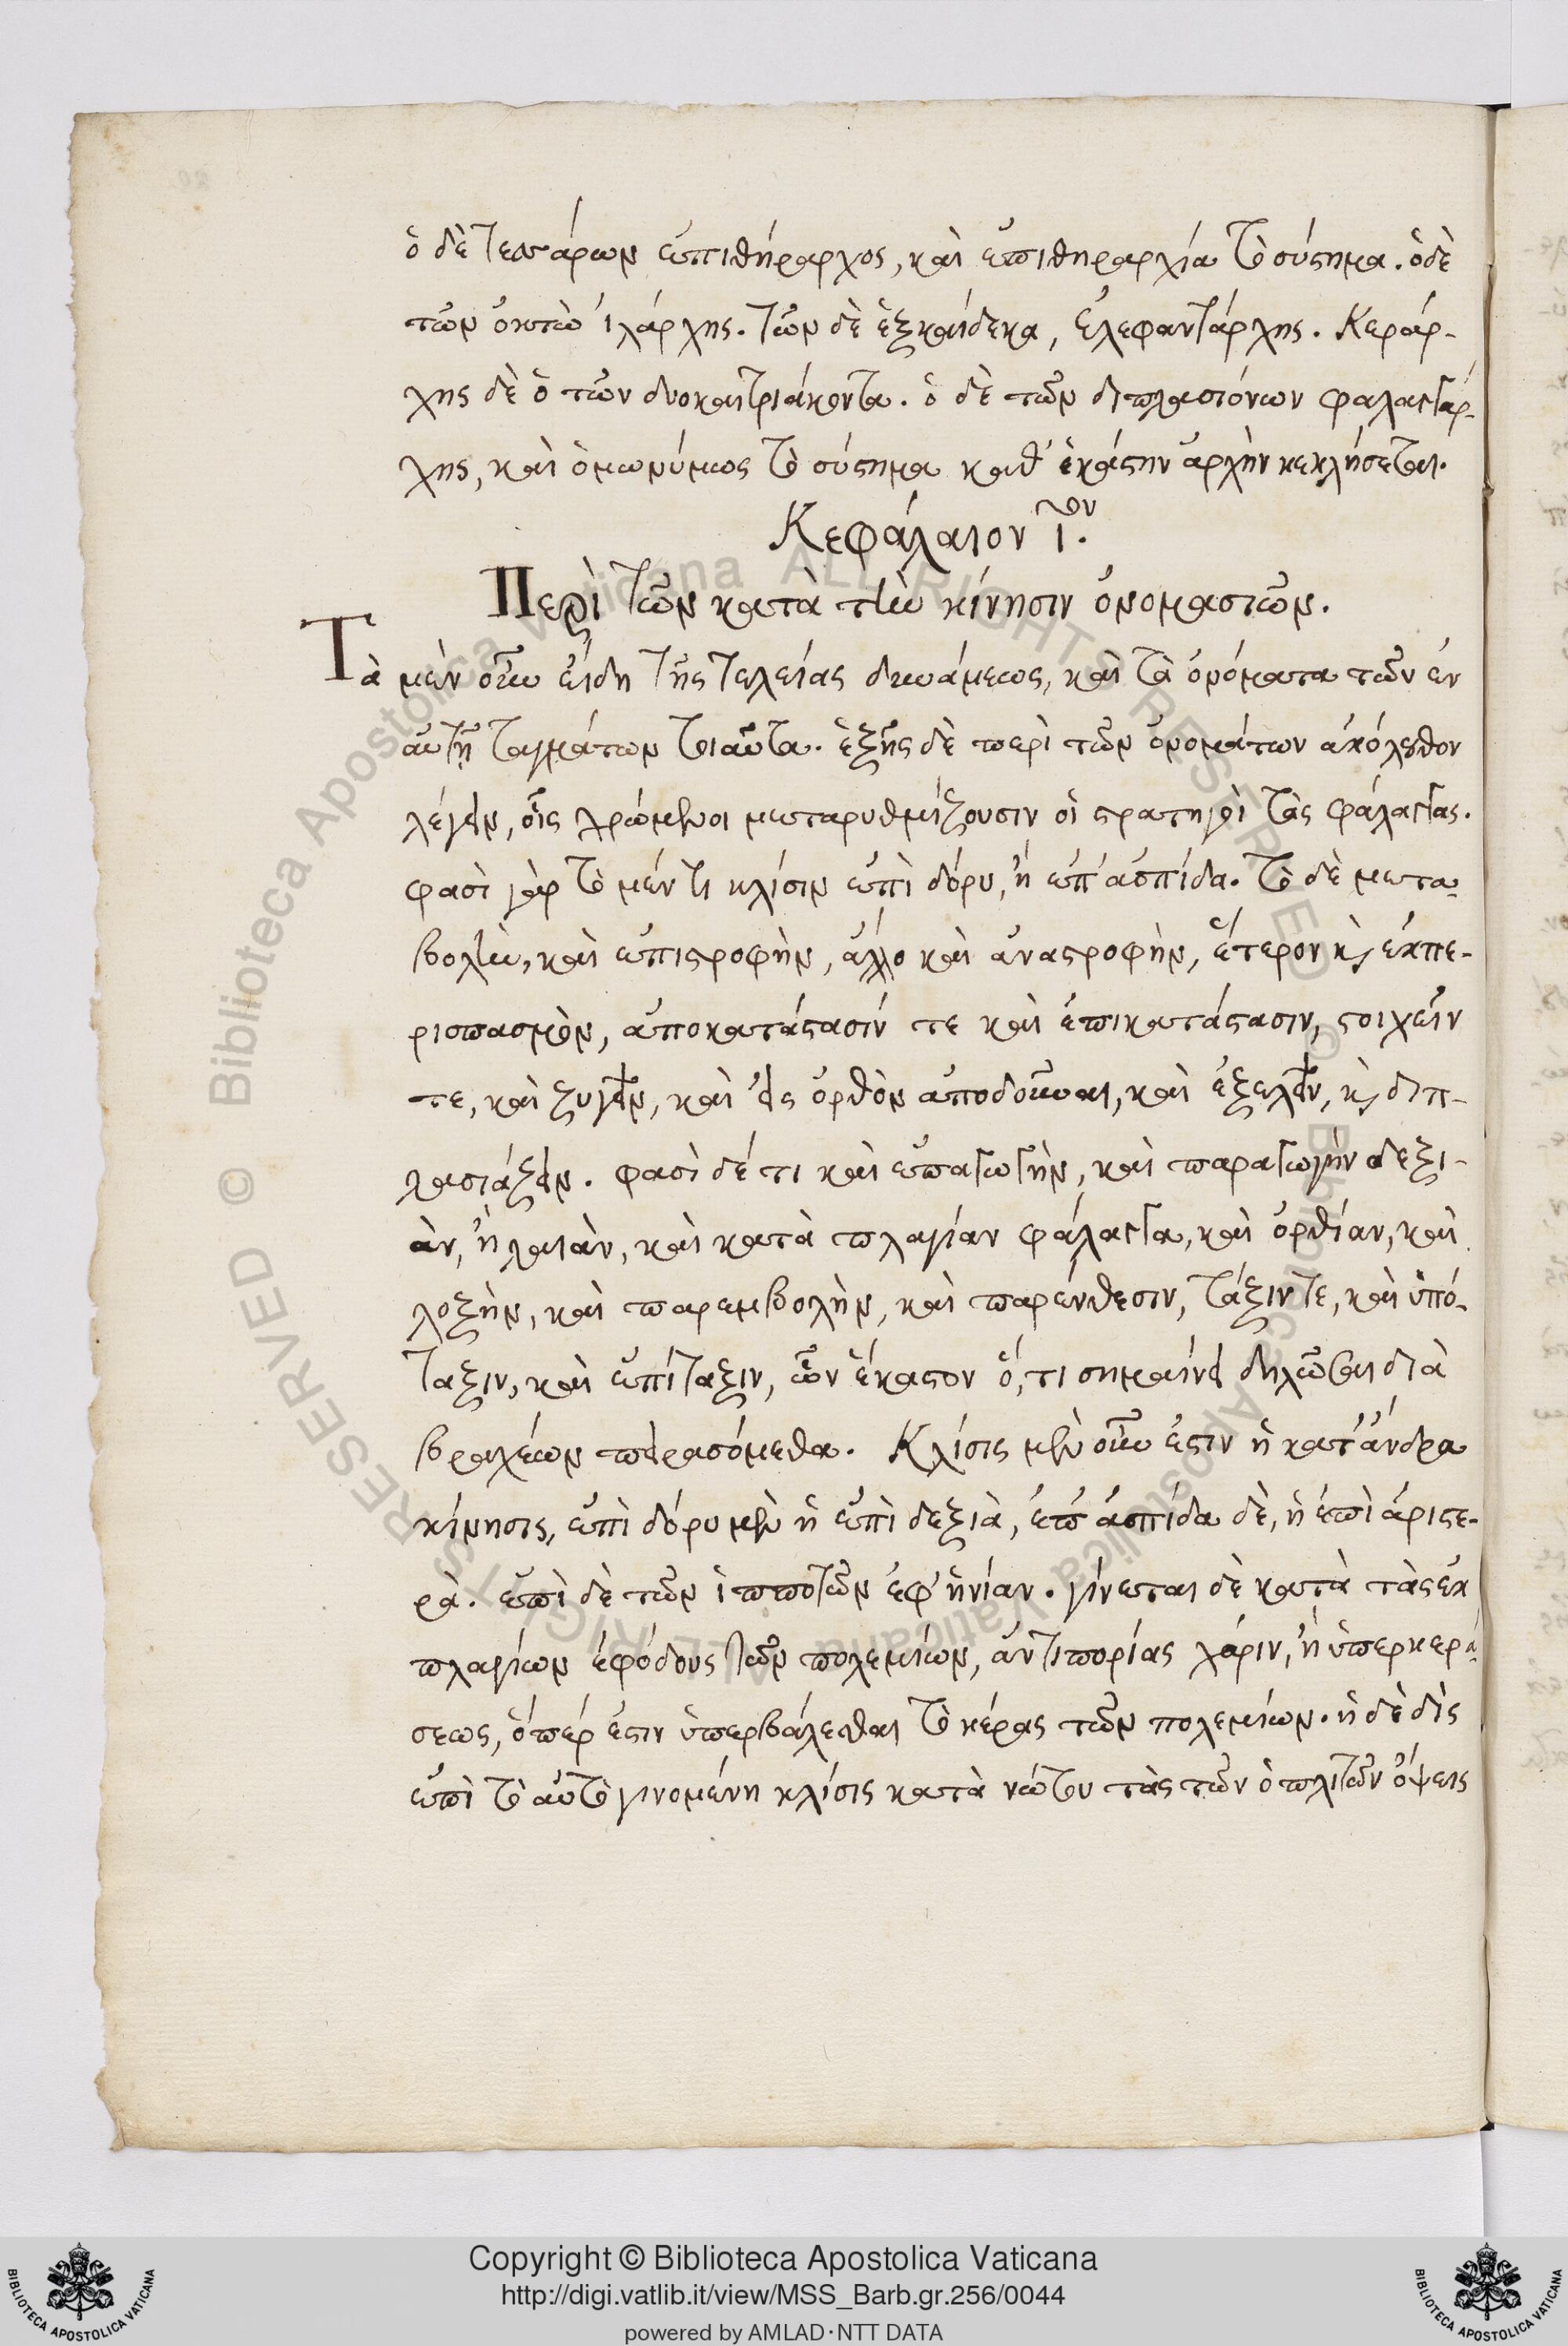 ὁ δὲ τεσσάρων ἐπιθήραρχος, καὶ ἐπιθηραρχία τὸ σύστημα. ὁ δὲ
τῶν ὀκτὼ ἰλάρχης. τῶν δὲ ἑξκαίδεκα, ἐλεφαντάρχης. Κεράρ-
χης δὲ ὁ τῶν δυοκαιτριάκοντα. ὁ δὲ τῶν διπλασιόνων φαλαγγάρ-
χης, καὶ ὁμωνύμως τὸ σύστημα καθ' ἑκάστην ἀρχὴν κεκλήσεται.
Κεφάλαιον ι̅ον.
Περὶ τῶν κατὰ τὴν κίνησιν ὀνομασιῶν.
Τὰ μὲν οὖν εἴδη τῆς τελείας δυνάμεως, καὶ τὰ ὀνόματα τῶν ἐν
αὐτῇ ταγμάτων τοιαῦτα. ἑξῆς δὲ περὶ τῶν ὀνομάτων ἀκόλουθον
λέγειν, οἷς χρώμενοι μεταρυθμίζουσιν οἱ στρατηγοὶ τὰς φάλαγγας.
φασὶ γὰρ τὸ μέν τι κλίσιν ἐπὶ δόρυ, ἢ ἐπ' ἀσπίδα. τὸ δὲ μετα-
βολὴν, καὶ ἐπιστροφὴν, ἄλλο καὶ ἀναστροφὴν, ἕτερον καὶ ἐκπε-
ρισπασμὸν, ἀποκατάστασίν τε καὶ ἐπικατάστασιν, στοιχεῖν
τε, καὶ ζυγεῖν, καὶ εἰς ὀρθὸν ἀποδοῦναι, καὶ ἐξελεῖν, καὶ διπ-
λασιάζειν. φασὶ δέ τι καὶ ἐπαγωγὴν, καὶ παραγωγὴν δεξι-
ὰν, ἢ λαιὰν, καὶ κατὰ πλαγίαν φάλαγγα, καὶ ὀρθίαν, καὶ
λοξὴν, καὶ παρεμβολὴν, καὶ παρένθεσιν, τάξιν τε, καὶ ὑπό-
ταξιν, καὶ ἐπίταξιν, ὧν ἕκαστον ὅ, τι σημαίνει δηλῶσαι διὰ
βραχέων πειρασόμεθα. Κλίσις μὲν οὖν ἐστιν ἡ κατ' ἄνδρα
κίνησις, ἐπὶ δόρυ μὲν ἡ ἐπὶ δεξιὰ, ἐπ' ἀσπίδα δὲ, ἡ ἐπὶ ἀριστε-
ρὰ. ἐπὶ δὲ τῶν ἱπποτῶν ἐφ' ἡνίαν. γίνεται δὲ κατὰ τὰς ἐκ
πλαγίων ἐφόδους τῶν πολεμίων, ἀντιπορίας χάριν, ἢ ὑπερκερά-
σεως, ὅπερ ἐστιν ὑπερβάλεσθαι τὸ κέρας τῶν πολεμίων. ἡ δὲ δὶς
ἐπὶ τὸ αὐτὸ γινομένη κλίσις κατὰ νώτου τὰς τῶν ὁπλιτῶν ὄψεις
Copyright © Biblioteca Apostolica Vaticana
http://digi.vatlib.it/view/MSS_Barb.gr.256/0044
powered by AMLAD·NTT DATA
BIBLIOTECA APOSTOLICA VATICANA
BIBLIOTECA APOSTOLICA VATICANA
© Biblioteca Apostolica Vaticana ALL RIGHTS RESERVED
© Biblioteca Apostolica Vaticana ALL RIGHTS RESERVED